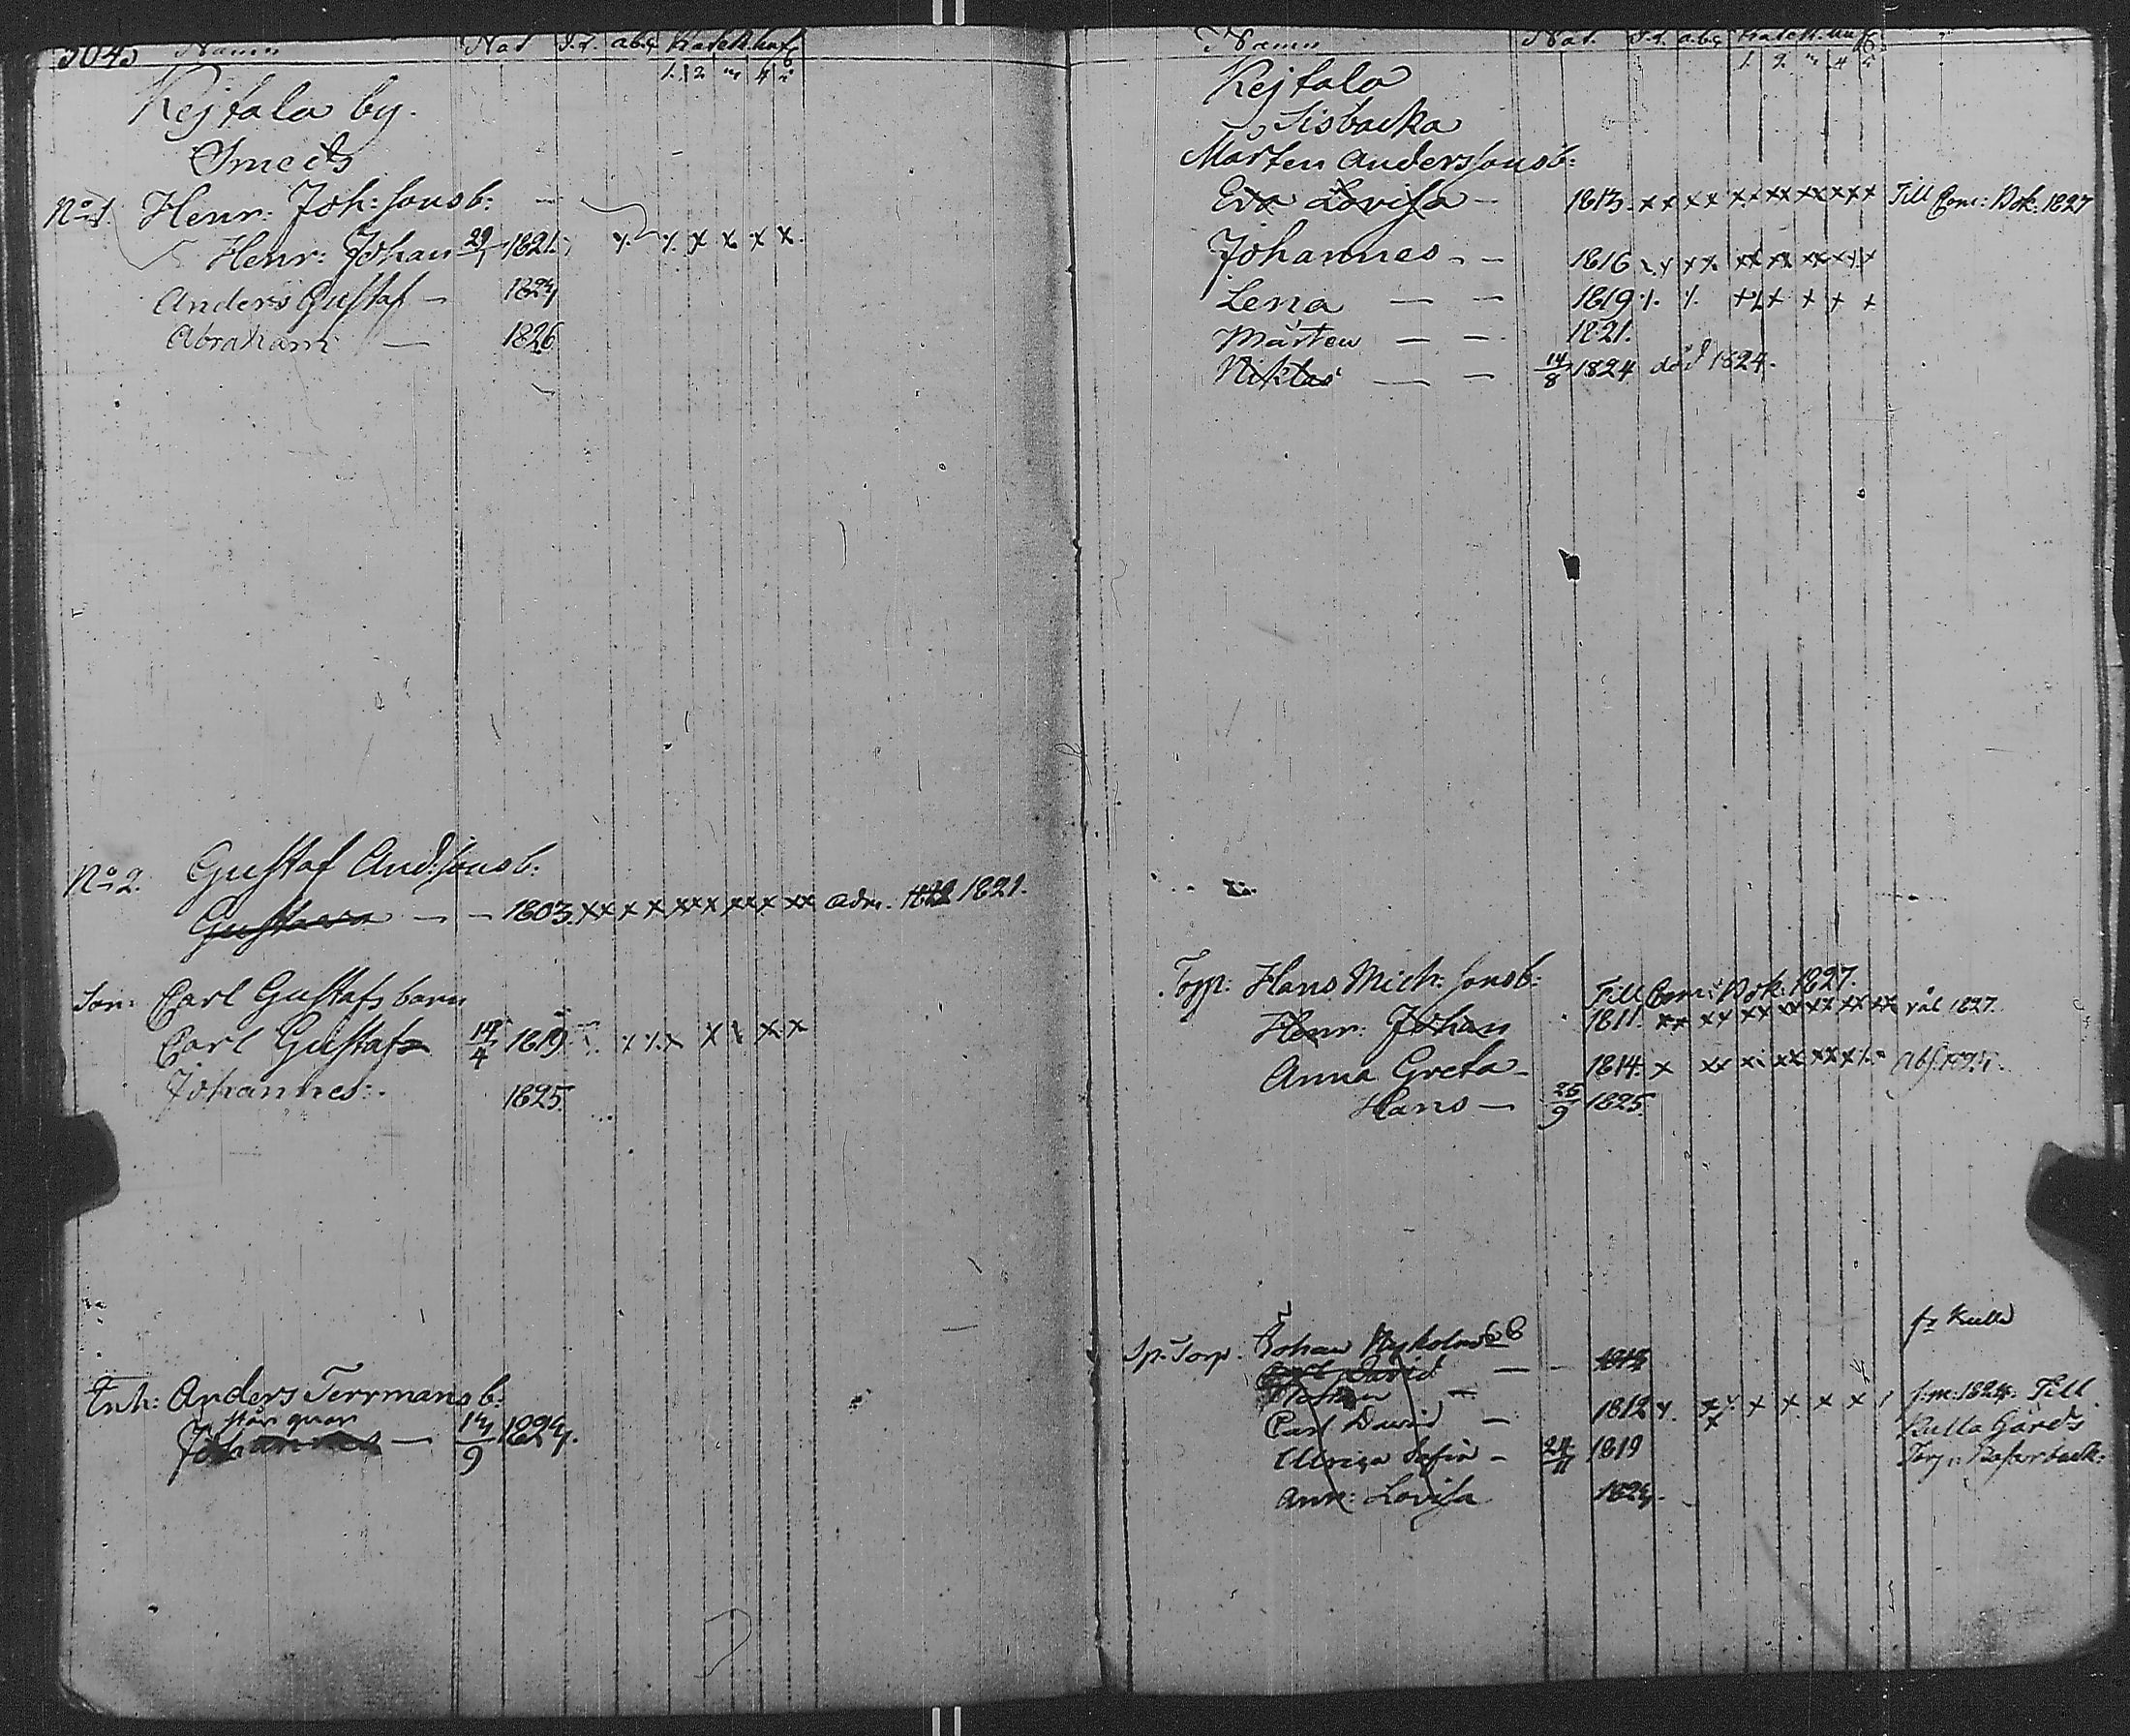 304. Namn Nat. I.t. abc Katek. huf.
1. 2. 3 4 5
Kejtala by.
Smeds
No 1. Henr: Joh:sons b: —
Henr: Johan 29/1 1821.
Anders Gustaf — 1824
Abraham — 1826
No 2. Gustaf And:sons b:
Gustava — — 1803. xx x x xx x xx x xx adm. 1822 1821.
Son: Carl Gustafs barn
Carl Gustaf 14/4 1819
Johannes: 1825.
Inh: Anders Terrmans b:
står quar
Johannes — 14/9 1824.
Namn Nat. I.t. abc Katek. huf.
1. 2. 3 4 5
Kejtala
Sisbacka
Mårten Anderssons b:
Eva Lovisa — 1813. xx xx xx xx xx xxx Till Com: Bok: 1827
Johannes — — 1816
Lena — — 1819
Mårten — — 1821.
Niklas — — 14/8 1824 död 1824.
Torp: Hans Mich:sons b: Till Com: Bok: 1827.
Henr: Johan 1811. xx xx xx xx xx xx xx 1827.
Anna Greta — 1814.
Hans — 25/9 1825
Sp. Torp. Johan Nyholms b
Carl David — —
Johan —
Carl David — 1812
Ulrica Sofia — 24/11 1819
Ann: Lovisa 1824.
fr Kulla
1824. Till
Kulla Gårds
Torp: